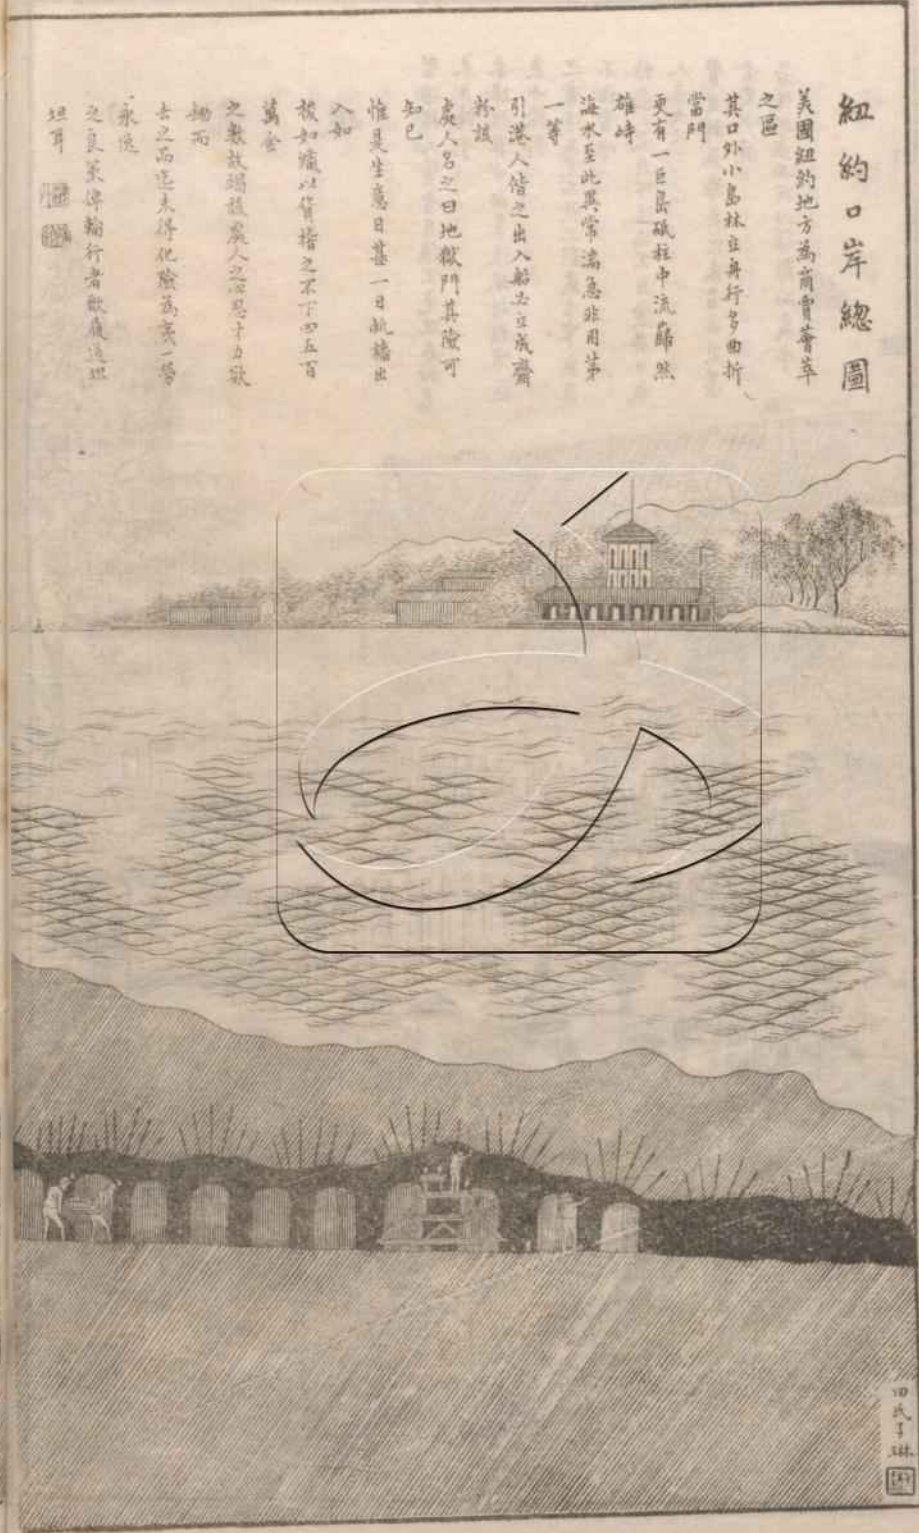 紐約口岸總圖
美國紐約地方為商賈薈萃
之區
其口外小島林立舟行多曲折
當門
更有一巨島砥柱中流巋然
雄峙
海水至此異常湍急非用第
一等
引港人偕之出入船必立成齏
粉該
處人名之曰地獄門其險可
知已
惟是生意日甚一日帆檣出
入如
梭如織以貨稽之不下四五百
萬金
之數故竭該處人之心思才力欲
鋤而
去之而迄未得化險為夷一勞
永逸
之良策俾輪行者歌履道坦
坦耳
田氏子琳